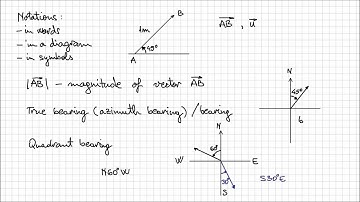 Notations:
- in words
- in a diagram
- in symbols
1m
45°
A
B
AB , u
|AB| - magnitude of vector AB
True bearing (azimuth bearing) / bearing
N
45°
Quadrant bearing
N60°W
N
60°
W
E
30°
S
S30°E